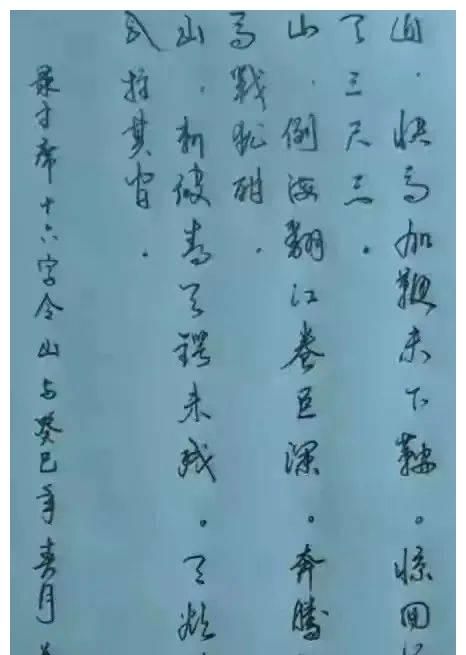 山.快马加鞭未下鞍。惊回
天三尺三。
山.倒海翻江卷巨澜。奔腾
马战犹酣.
山.刺破青天锷未残。天欲
拄其间.
录主席十六字令山与癸巳年春月